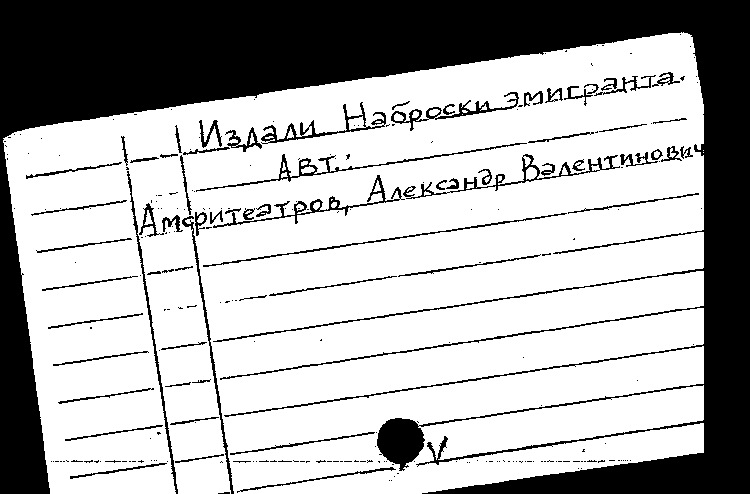 Издали Наброски эмигранта.
Авт.:
Амфитеатров, Александр Валентинович
V